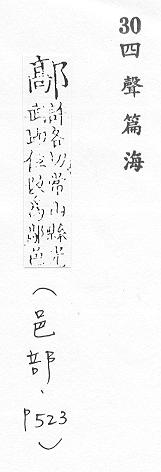 30四聲篇海
鄗
許各切常山縣光
武改
(邑部,P523)